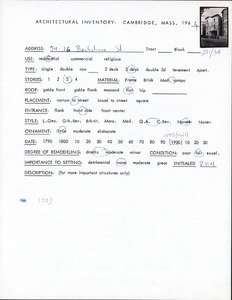 ARCHITECTURAL INVENTORY: CAMBRIDGE, MASS, 196
ADDRESS: 24-26 Berkshire St Tract Block
USE: residential commercial religious
TYPE: single double row 2 deck 3 deck double 3d tenement Apart.
STORIES: 1 2 3 4 5 MATERIAL: Frame Brick Mod.
ROOF: gable front gable flank mansard flat hip
PLACEMENT: narrow to street broad to street square
ENTRANCE: flank front side front center
STYLE: L.Geo. G.Rev. Brkttd. Mans. Med. Q.A. C.Rev. None
ORNAMENT: little moderate elaborate
DATE: 1790 1800 10 20 30 40 50 60 70 80 90 1900 10 20 30
DEGREE OF REMODELING: drastic moderate minor CONDITION: poor fair excel.
IMPORTANCE TO SETTING: detrimental none moderate great INITIALED
DESCRIPTION: (for more important structures only)